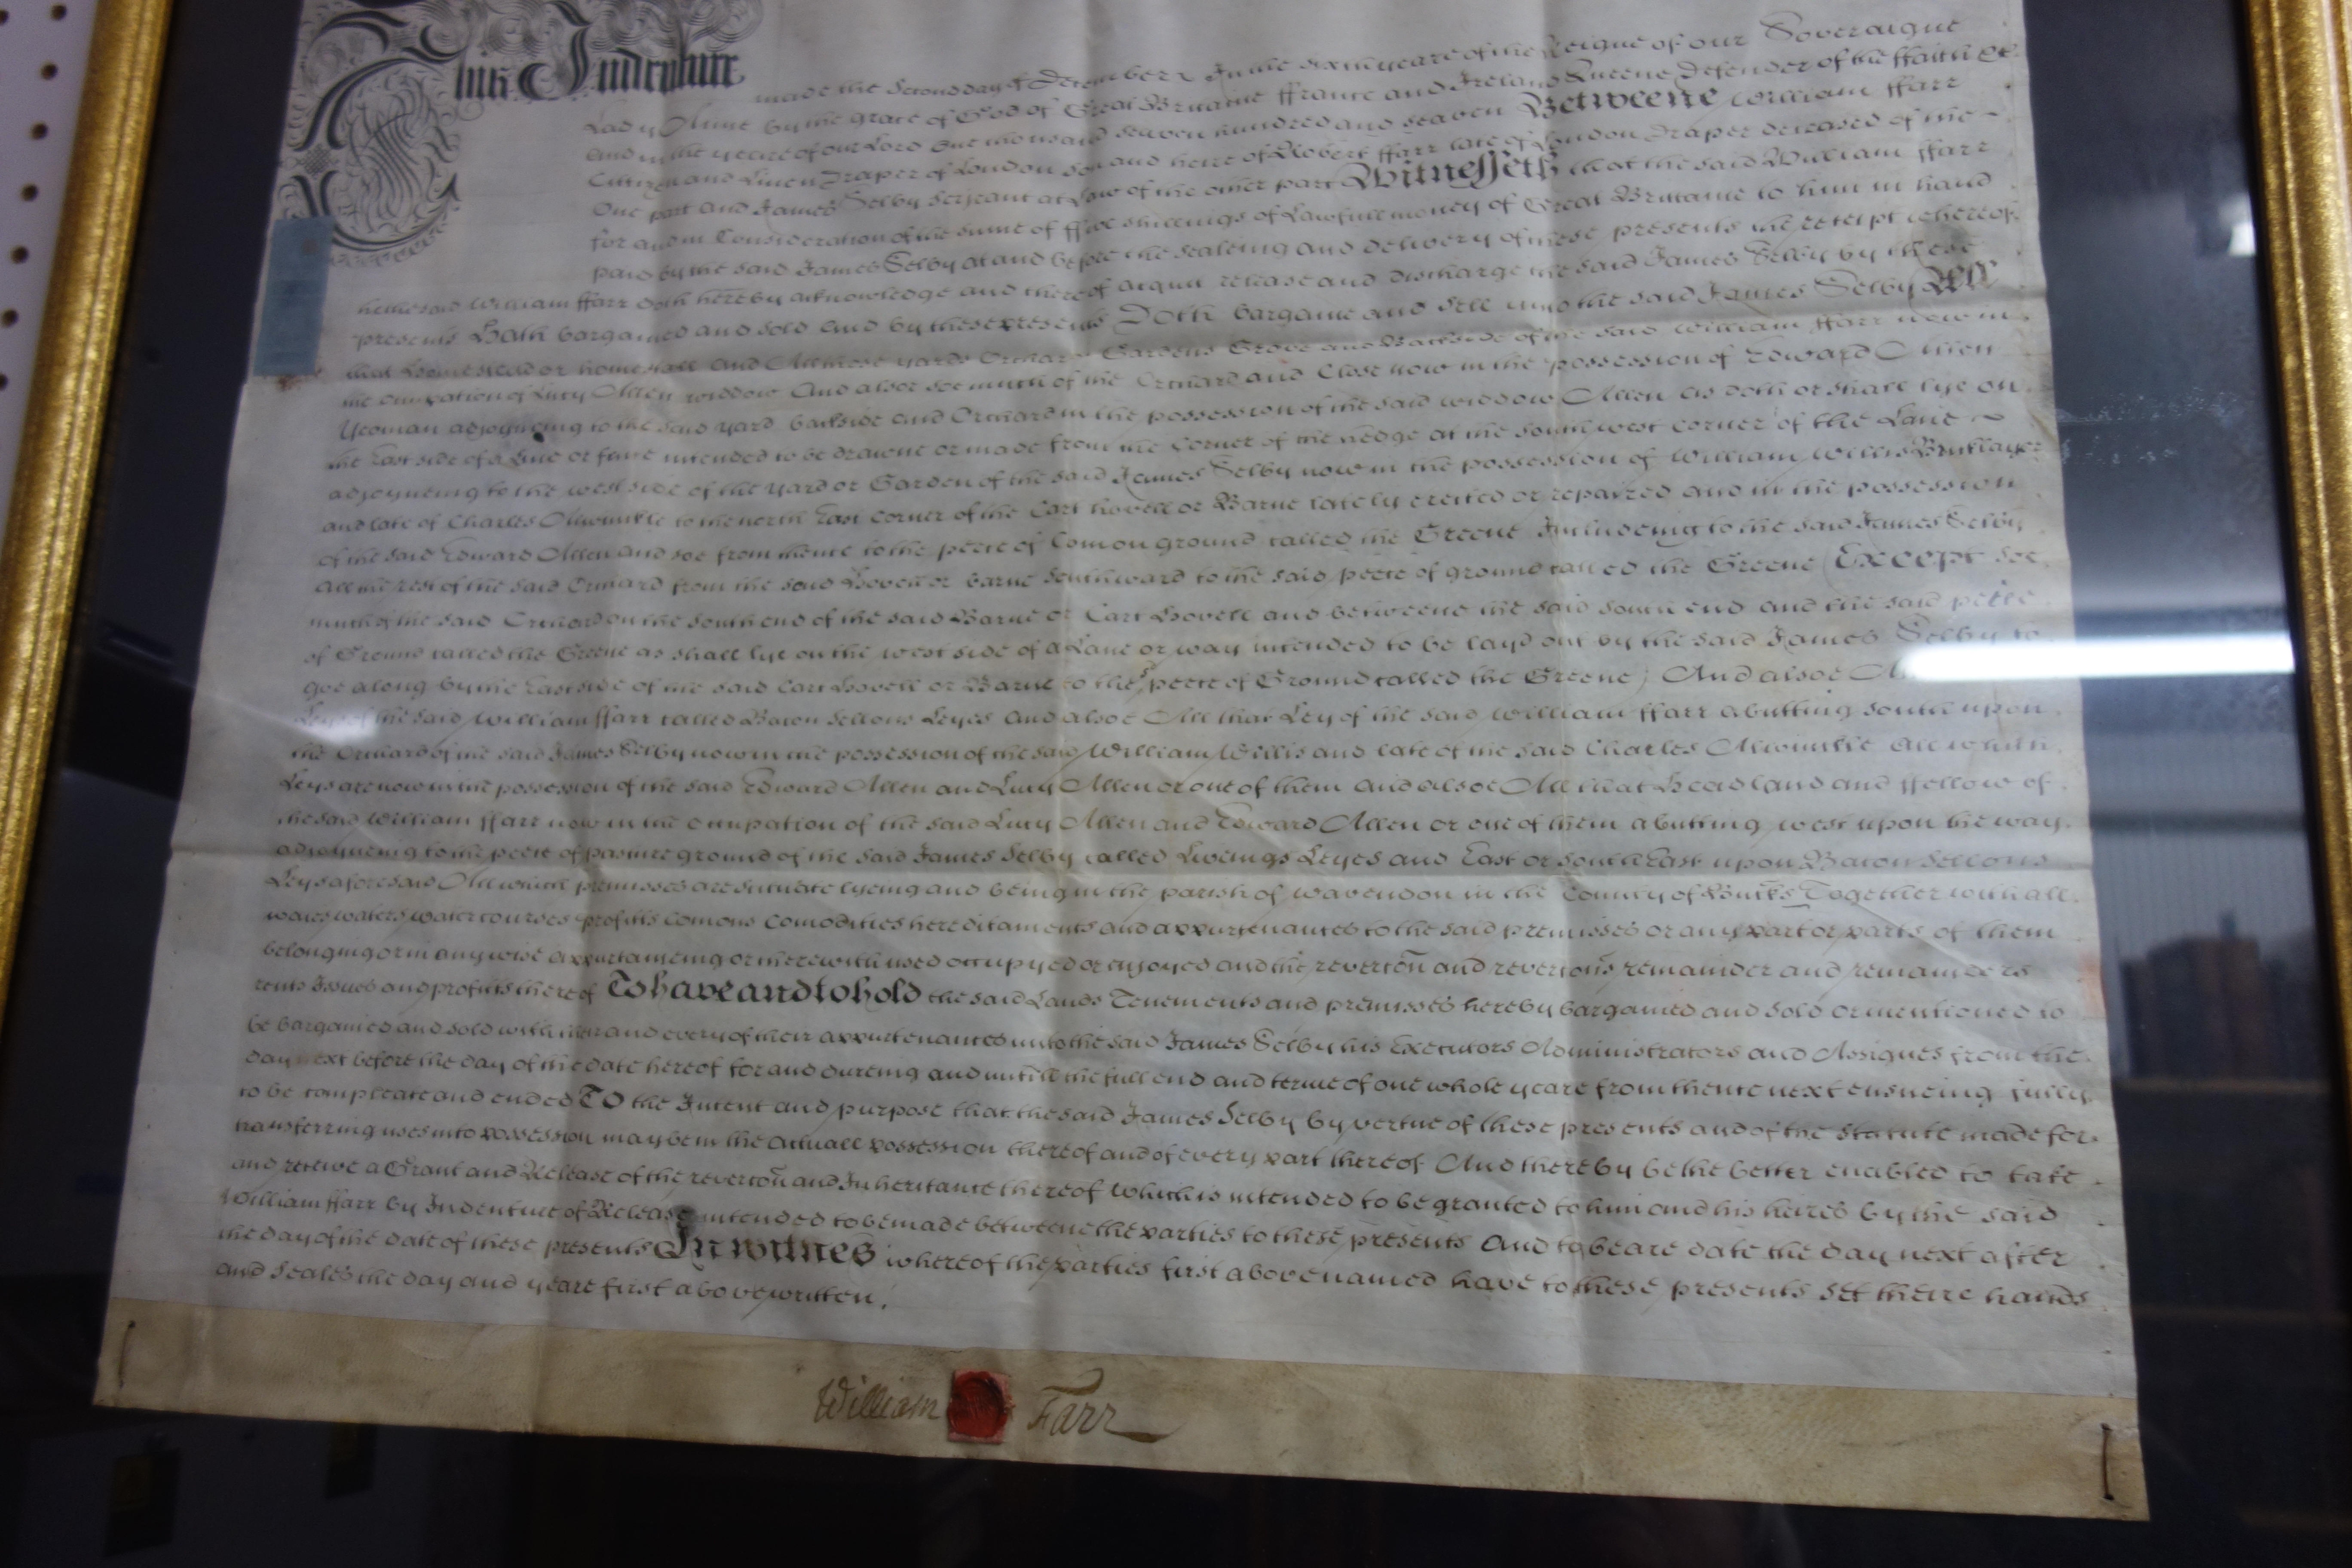 This Indenture made the Second day of December In the sixth yeare of the Reigne of our Soveraigne
Lady Anne by the grace of God of Great Brittaine ffrance and Ireland Queene Defender of the ffaith &c
And in the yeare of our Lord One thousand seaven hundred and seaven Betweene William ffarr
Cittizen and Linen Draper of London son and heire of Robert ffarr late of London Draper deceased of the
One part and James Selby Serjeant at Law of the other part Witnesseth that the said William ffarr
for and in Consideration of the sume of ffive shillings of Lawfull money of Great Brittaine to him in hand
paid by the said James Selby at and before the sealeing and delivery of these presents the receipt whereof
he the said William ffarr doth hereby acknowledge and thereof acquit release and discharge the said James Selby by these
presents Hath bargained and sold and by these presents Doth bargaine and sell unto the said James Selby All
that Homestead or homestall and All those yards Orchard Gardens Grove and Backside of the said William ffarr now in
the occupation of Lucy Allen widdow And alsoe soe much of the Orchard and Close now in the possession of Edward Allen
Yeoman adjoyneing to the said yard backside and Orchard in the possession of the said widdow Allen as doth or shall lye on
the East side of a Line or fence intended to be drawne or made from the Corner of the hedge at the south west corner of the Lane
adjoyneing to the west side of the yard or Garden of the said James Selby now in the possession of William Willis Bricklayer
and late of Charles Aliwinkle to the north East corner of the Cart hovell or Barne lately erected or repaired and in the possession
of the said Edward Allen and soe from thence to the peece of Comon ground called the Greene Includeing to the said James Selby
All the rest of the said Orchard from the said Hovell or barne Southward to the said peece of ground called the Greene (Except soe
much of the said Orchard on the South end of the said Barne or Cart Hovell and betweene the said South end and the said peece
of Ground called the Greene as shall lye on the west side of a Lane or way intended to be layd out by the said James Selby to
goe along by the East side of the said Cart Hovell or Barne to the peece of Ground called the Greene) And alsoe
Leyes of the said William ffarr called Bacon Sellons Leyes and alsoe All that Ley of the said William ffarr abutting south upon
the Orchard of the said James Selby now in the possession of the said William Willis and late of the said Charles Aliwinkle All which
Leys are now in the possession of the said Edward Allen and Lucy Allen or one of them and alsoe All that Headland and ffellow of
the said William ffarr now in the occupation of the said Lucy Allen and Edward Allen or one of them abutting west upon the way
adjoyneing to the peece of pasture ground of the said James Selby called Leyes and East or South East upon Bacon Sellons
Leys aforesaid All which premisses are scituate lyeing and being in the parish of Wavendon in the County of Bucks Together with all
waies waters water courses profitts Comons Comodities hereditaments and appurtenances to the said premisses or any part or parts of them
belonging or in any wise appurtaineing or therewith used occupyed or enjoyed and the revercōn and revercōns remainder and remainders
rents Issues and profitts thereof To have and to hold the said Lands Tenements and premisses hereby bargained and sold or mentioned to
be bargained and sold with their and every of their appurtenances unto the said James Selby his Executors Administrators and Assignes from the
day next before the day of the date hereof for and dureing and untill the full end and terme of one whole yeare from thence next ensueing fully
to be compleate and ended TO the Intent and purpose that the said James Selby by vertue of these presents and of the Statute made for
transferring uses into possession may be in the actuall possession thereof and of every part thereof And thereby be the better enabled to take
and receive a Grant and Release of the revercōn and Inheritance thereof which is intended to be granted to him and his heires by the said
William ffarr by Indenture of Release intended to be made betweene the parties to these presents and to beare date the day next after
the day of the date of these presents In witnes whereof the parties first above named have to these presents set theire hands
and seales the day and yeare first above written.
William Farr